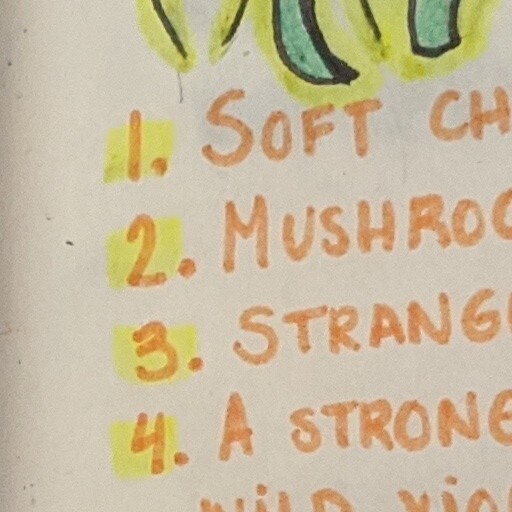 1. SOFT CH
2. MUSHROO
3. STRANG
4. A STRONG
WILD VIO